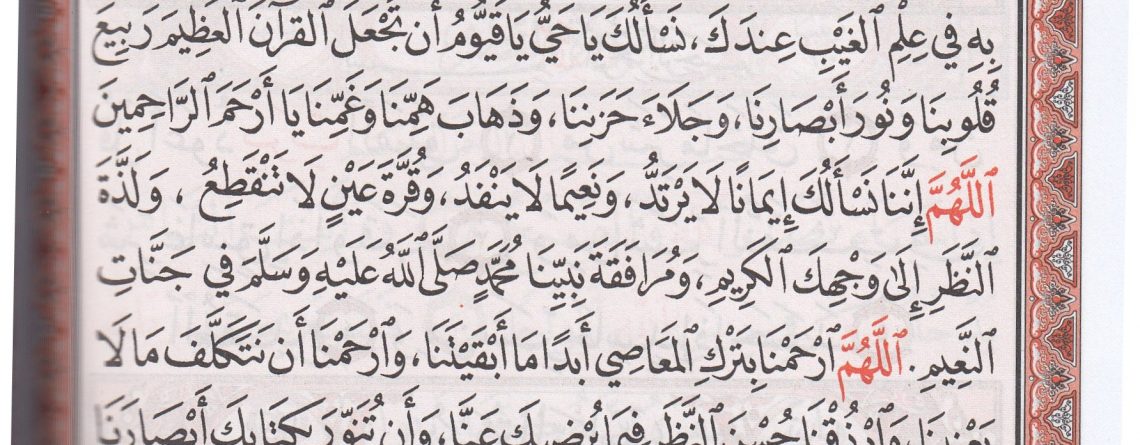 بِهِ فِي عِلْمِ ٱلْغَيْبِ عِندَكَ، نَسْأَلُكَ يَا حَيُّ يَا قَيُّومُ أَن تَجْعَلَ ٱلْقُرْآنَ ٱلْعَظِيمَ رَبِيعَ
قُلُوبِنَا وَنُورَ أَبْصَارِنَا، وَجَلَاءَ حَزَنِنَا، وَذَهَابَ هَمِّنَا وَغَمِّنَا يَا أَرْحَمَ ٱلرَّاحِمِينَ
ٱللَّهُمَّ إِنَّنَا نَسْأَلُكَ إِيمَانًا لَا يَرْتَدُّ، وَنَعِيمًا لَا يَنْفَدُ، وَقُرَّةَ عَيْنٍ لَا تَنْقَطِعُ ، وَلَذَّةَ
ٱلنَّظَرِ إِلَىٰ وَجْهِكَ ٱلْكَرِيمِ، وَمُرَافَقَةَ نَبِيِّنَا مُحَمَّدٍ صَلَّى ٱللَّهُ عَلَيْهِ وَسَلَّمَ فِي جَنَّاتِ
ٱلنَّعِيمِ. ٱللَّهُمَّ ٱرْحَمْنَا بِتَرْكِ ٱلْمَعَاصِي أَبَدًا مَا أَبْقَيْتَنَا، وَٱرْحَمْنَا أَن نَتَكَلَّفَ مَا لَا
يَعْنِينَا، وَٱرْزُقْنَا حُسْنَ ٱلنَّظَرِ فِيمَا يُرْضِيكَ عَنَّا، وَأَن تُنَوِّرَ بِكِتَابِكَ أَبْصَارَنَا